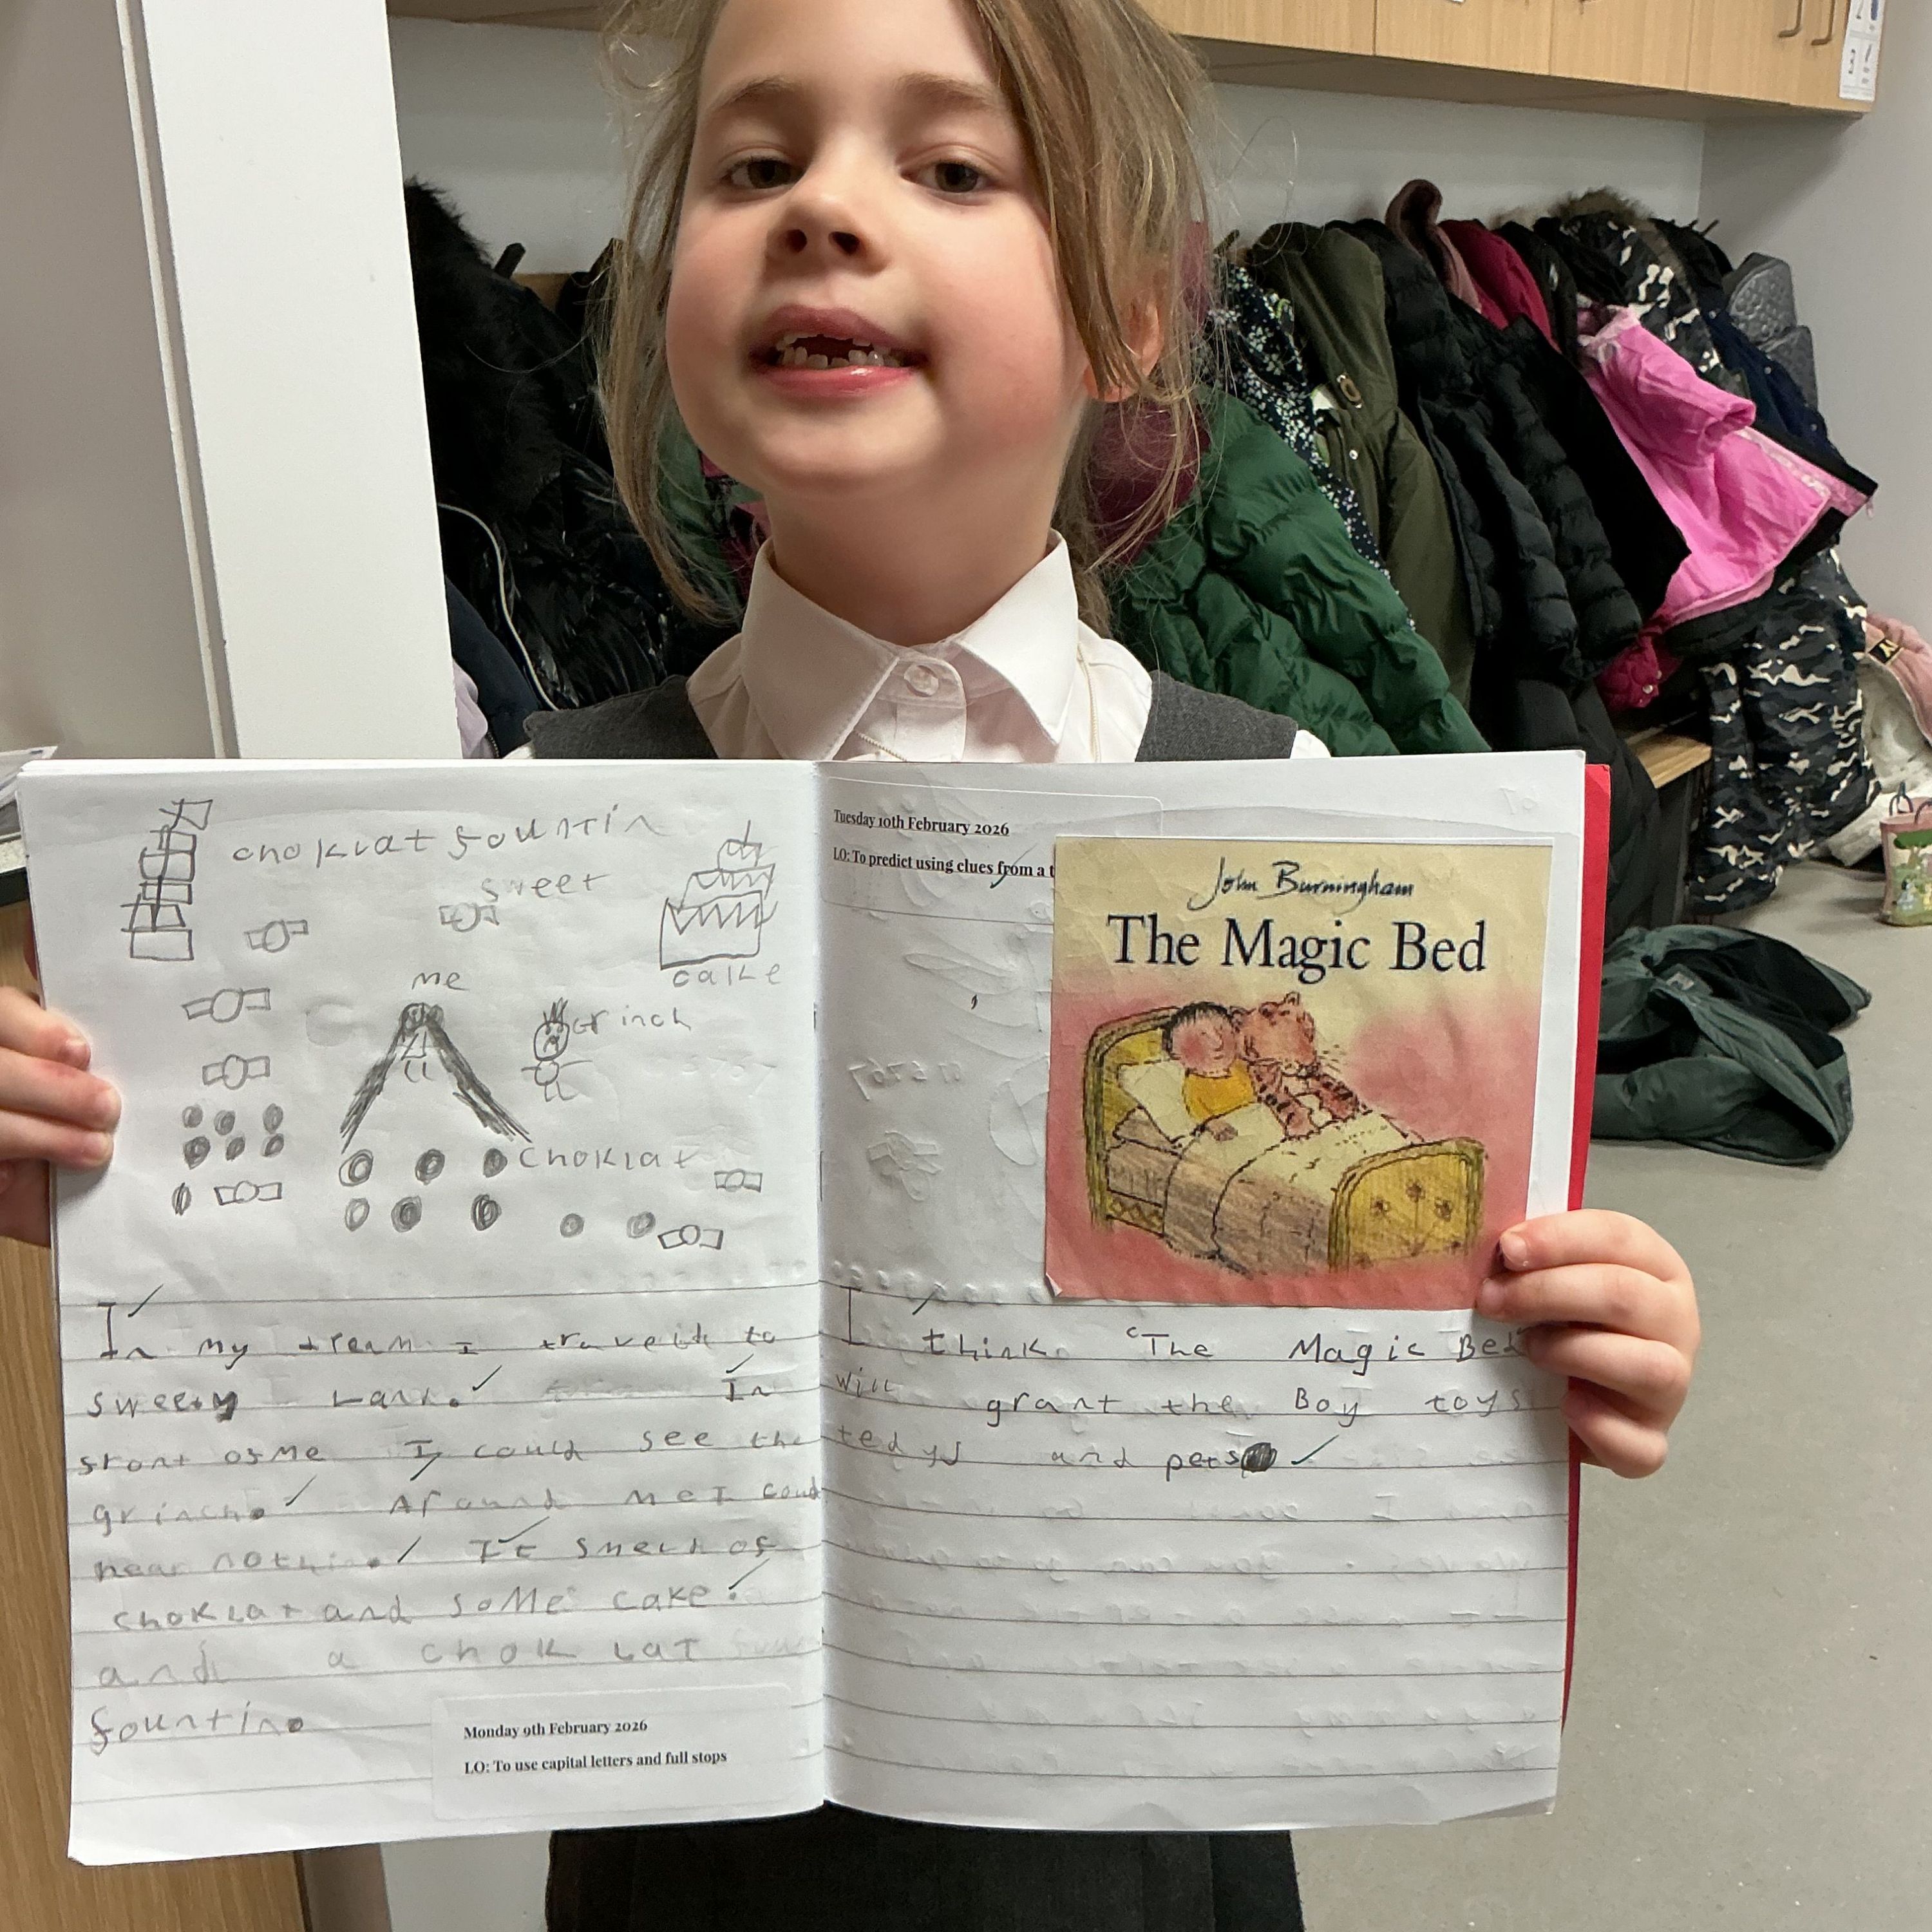 choklat fountin
sweet
cake
me
Grinch
choklat
In my dream I traveld to
sweety Land. In
front of Me I could see the
grinch. Around Me I coud
hear nothin. It smelld of
choklat and soMe cake.
and a chok Lat
fountin.
Monday 9th February 2026
LO: To use capital letters and full stops
Tuesday 10th February 2026
LO: To predict using clues from a t
John Burningham
The Magic Bed
I think "The Magic Bed"
will grant the Boy toys
tedys and pets